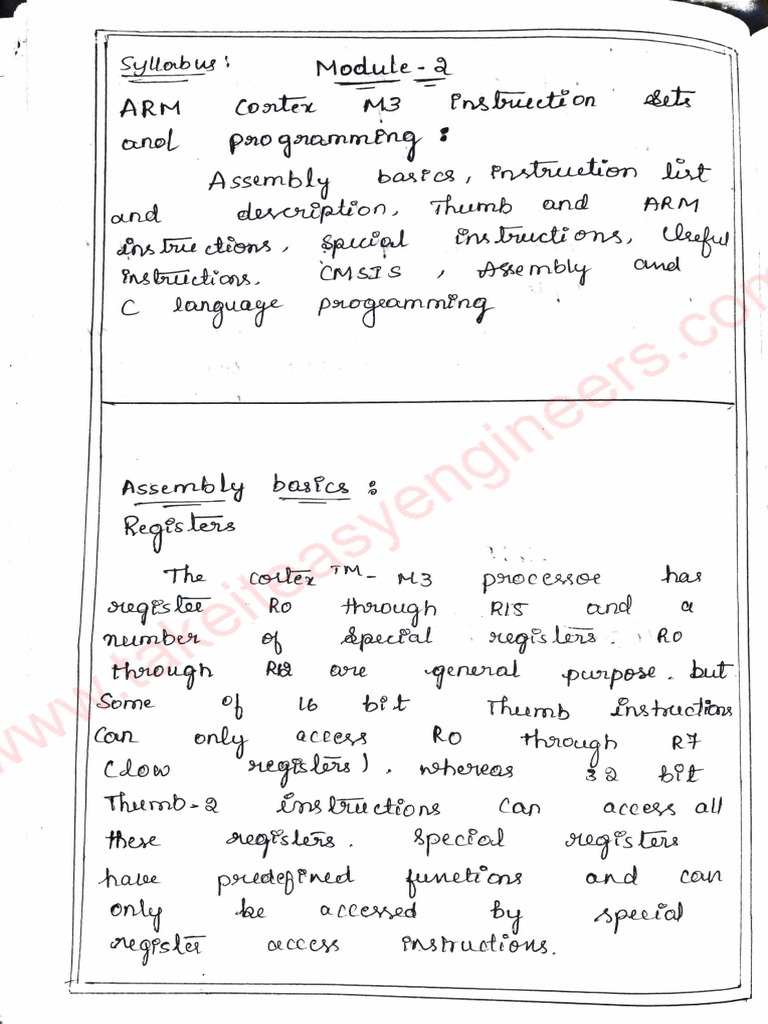 Syllabus: Module-2
ARM Cortex M3 instruction sets
and programming:
Assembly basics, instruction list
and description, Thumb and ARM
instructions, Special instructions, Useful
instructions. CMSIS, Assembly and
C language programming
Assembly basics:
Registers
The cortex™- M3 processor has
register R0 through R15 and a
number of special registers. R0
through R12 are general purpose. but
Some of 16 bit Thumb instructions
Can only access R0 through R7
(low registers), whereas 32 bit
Thumb-2 instructions Can access all
these registers. Special registers
have predefined functions and can
only be accessed by special
register access instructions.
www.takeiteasyengineers.com